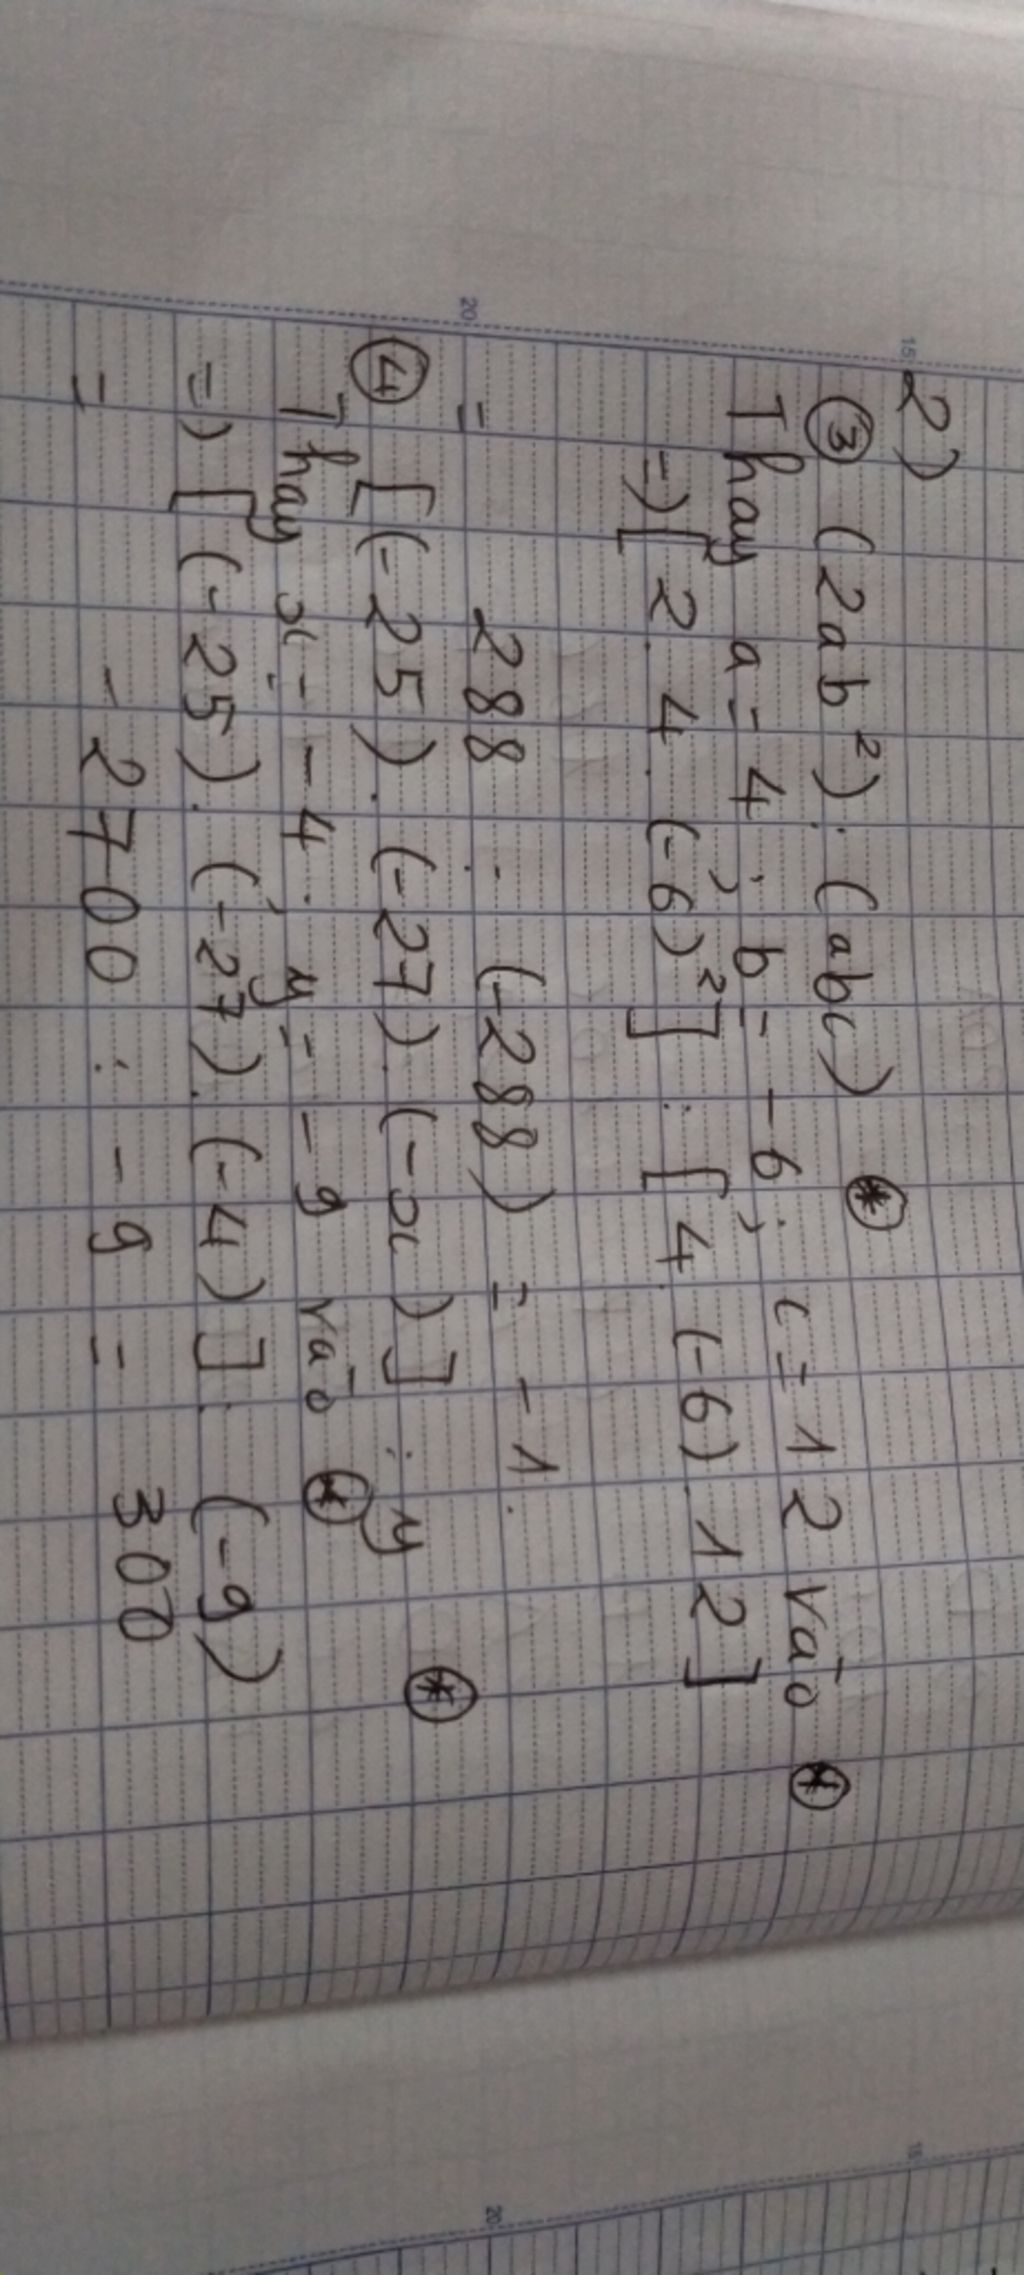 2)
③ (2ab²) : (abc) ⊛
Thay a = 4 ; b = -6 ; c = 12 vào ⊛
=) [2. 4. (-6)²] : [4. (-6). 12]
= 288 : (-288) = -1.
20
④ [(-25). (-27). (-x)] : y ⊛
Thay x = -4 ; y = -9 vào ⊛
=) [(-25). (-27). (-4)] : (-9)
= -2700 : -9 = 300
15
15
20